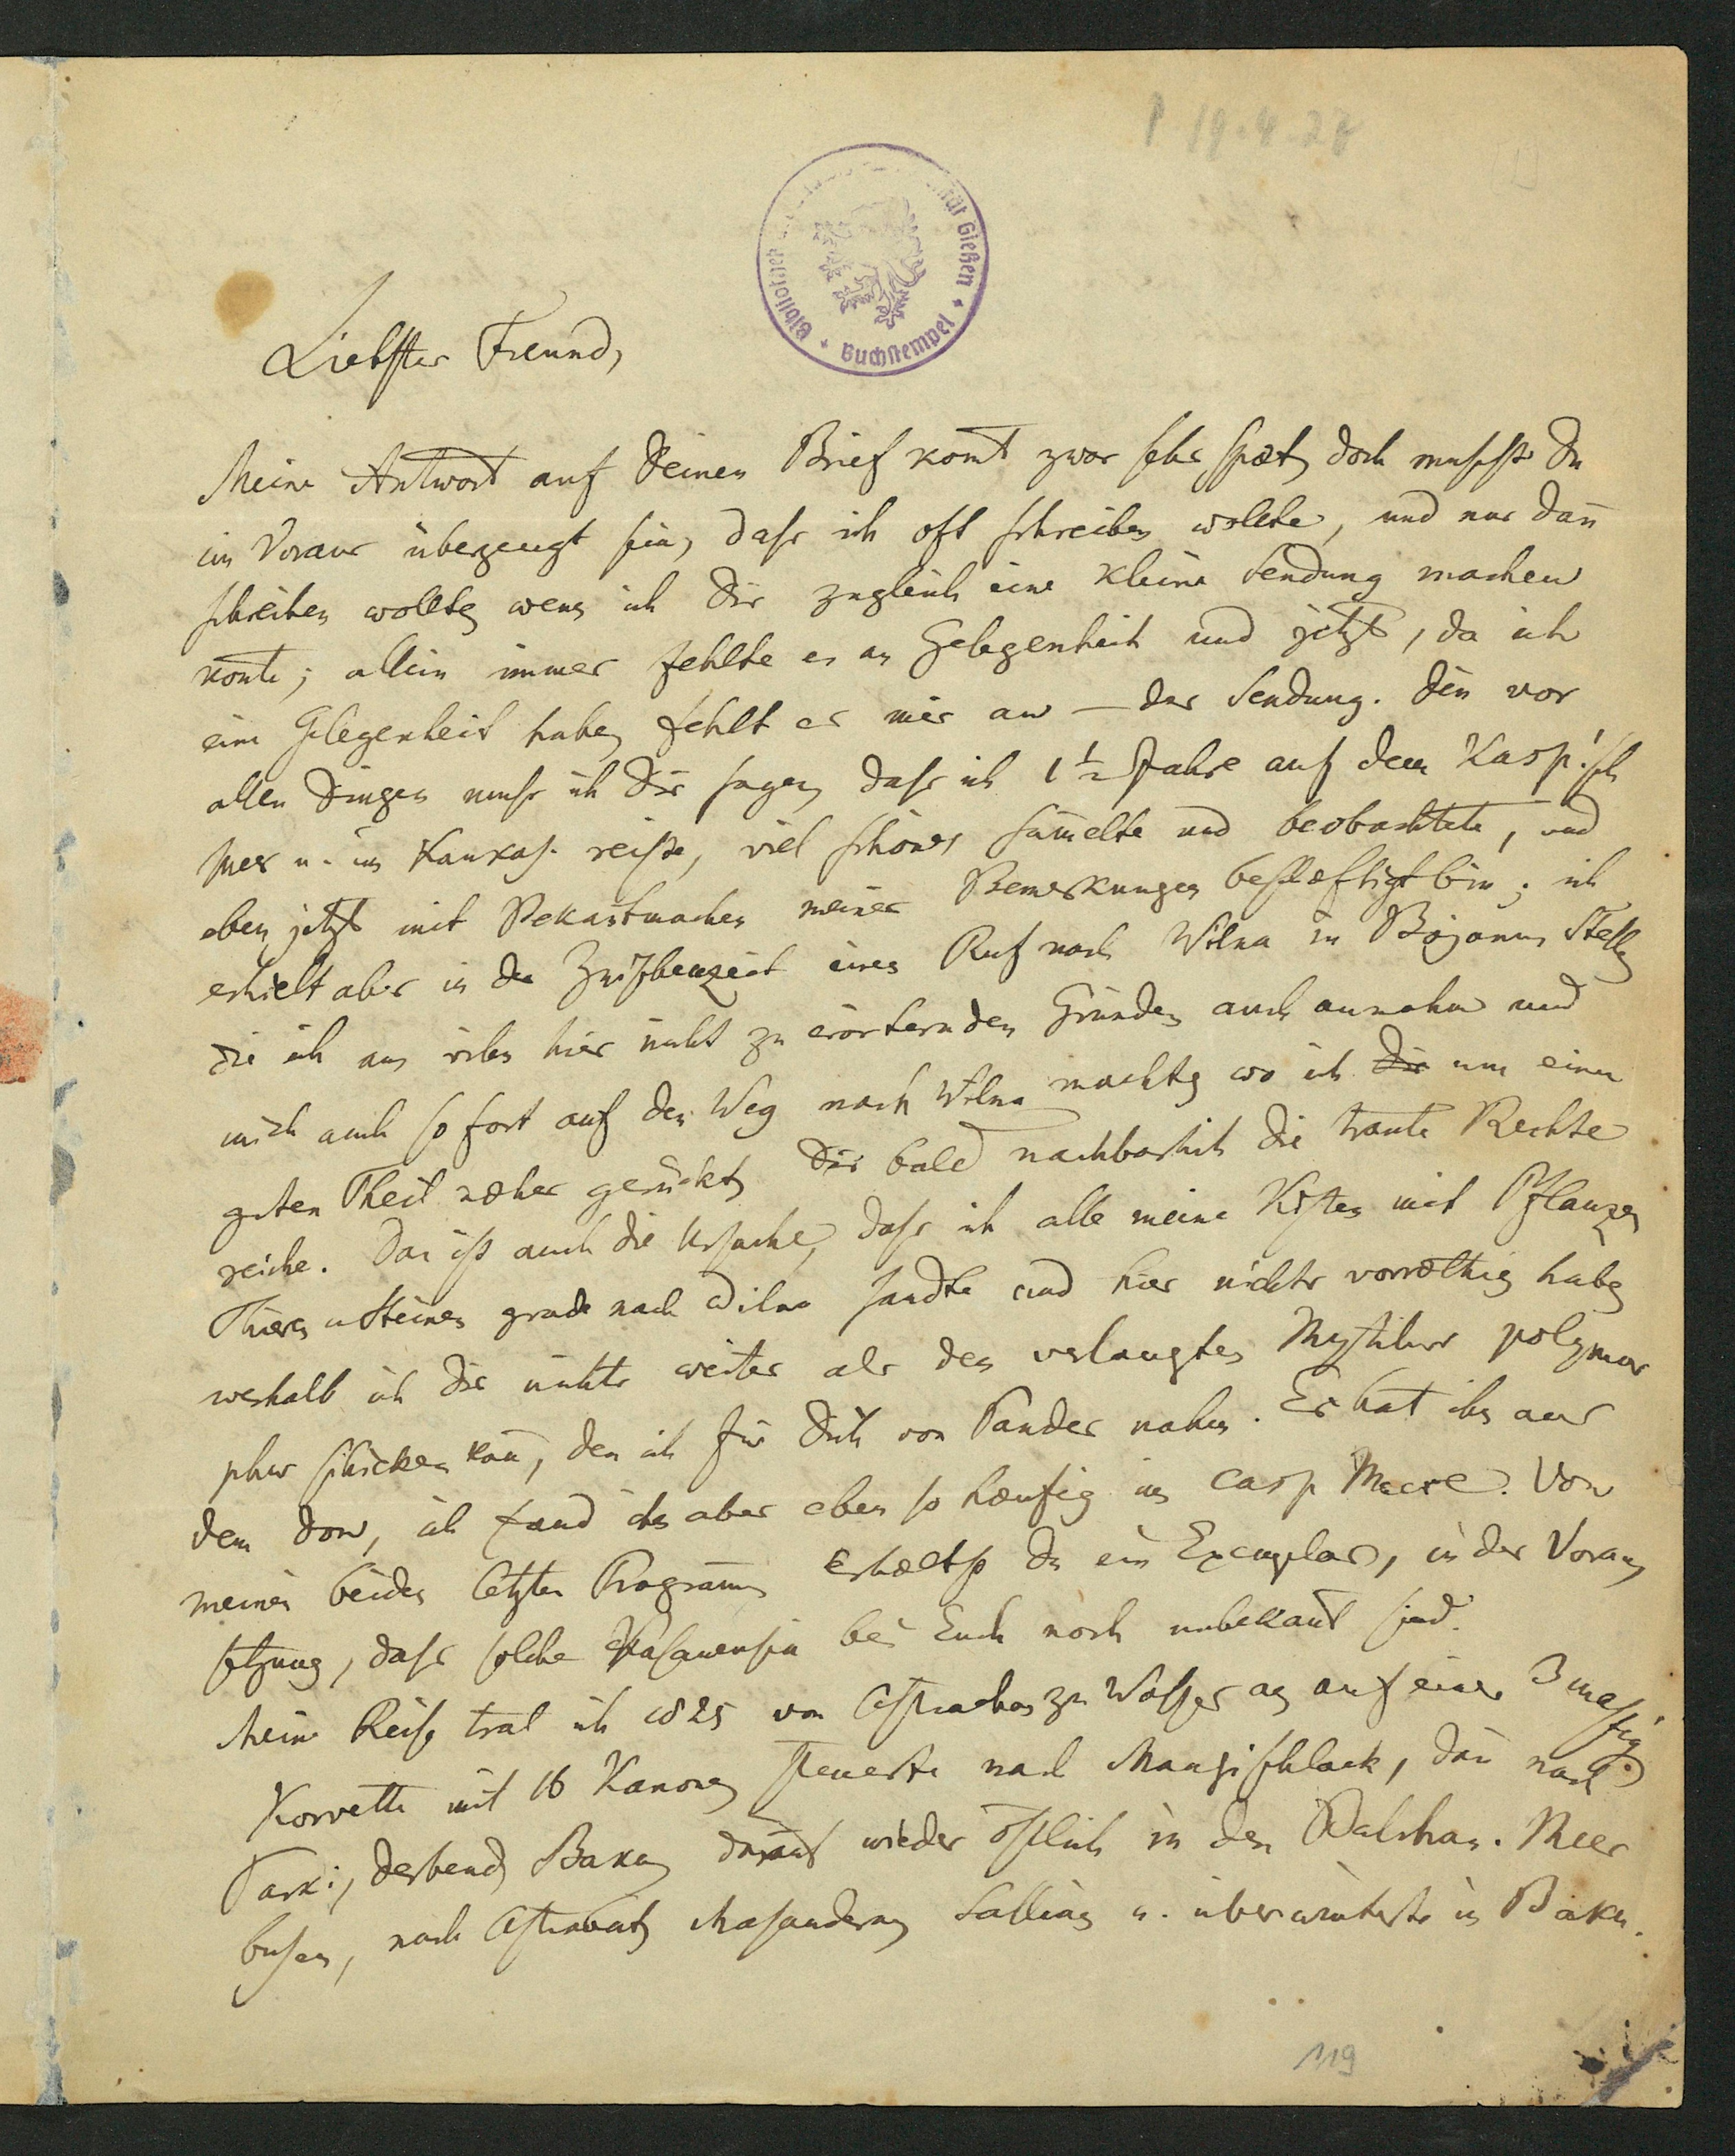 P 19.4.27
Bibliothek ität Gießen
Buchstempel
Liebster Freund,
Meine Antwort auf Deinen Brief komt zwar sehr spæt, doch musst Du
im Voraus überzeugt sein, dass ich oft schreiben wollte, und nur dan̄
schreiben wollte, wenn ich Dir zugleich eine kleine Sendung machen
konte; allein immer fehlte es an Gelegenheit und jetzt, da ich
eine Gelegenheit habe, fehlt es mir an — der Sendung. Den vor
allen Dingen muss ich Dir sagen, dass ich 1½ Jahre auf dem Kasp. sch
Meer u. im Kaukas. reiste, viel schönes sam̄elte und beobachtete, und
eben jetzt mit Bekantmachen meiner Bemerkungen beschæftigt bin; ich
erhielt aber in der Zwischenzeit einen Ruf nach Wilna in Bojanus Stelle,
die ich aus vielen hier nicht zu erörternden Gründen auch annahm und
mich auch sofort auf den Weg nach Wilna machte, wo ich Dir um einen
guten Theil næher gerückt, Dir bald nachbarlich die traute Rechte
reiche. Das ist auch die Ursache, dass ich alle meine Kisten mit Pflanzen,
Thieren u Steinen grade nach Wilna sandte und hier nichts vorræthig habe,
weshalb ich Dir nichts weiter als den verlangten Mytilus polymor
phus schicken kan̄, den ich für Dich von Pander nahm. Er hat ihn aus
dem Don, ich fand ihn aber eben so hæufig im Casp Meere. Von
meinen beiden letzten Program̄en erhæltst Du ein Exemplar, in der Voraus
setzung, dass solche Kasanensia bei Euch noch unbekant sind.
Meine Reise trat ich 1825 von Astrachan zu Wasser an auf einer 3 mastig.
Korvette mit 16 Kanonen, steuerte nach Mangischlack, dan̄ nach
Tarki, Derbend, Baku, darauf wieder östlich in den Balchan. Meer
busen, nach Astrabat, Masanderan, Sallian u. überwinterte in Baku.
119